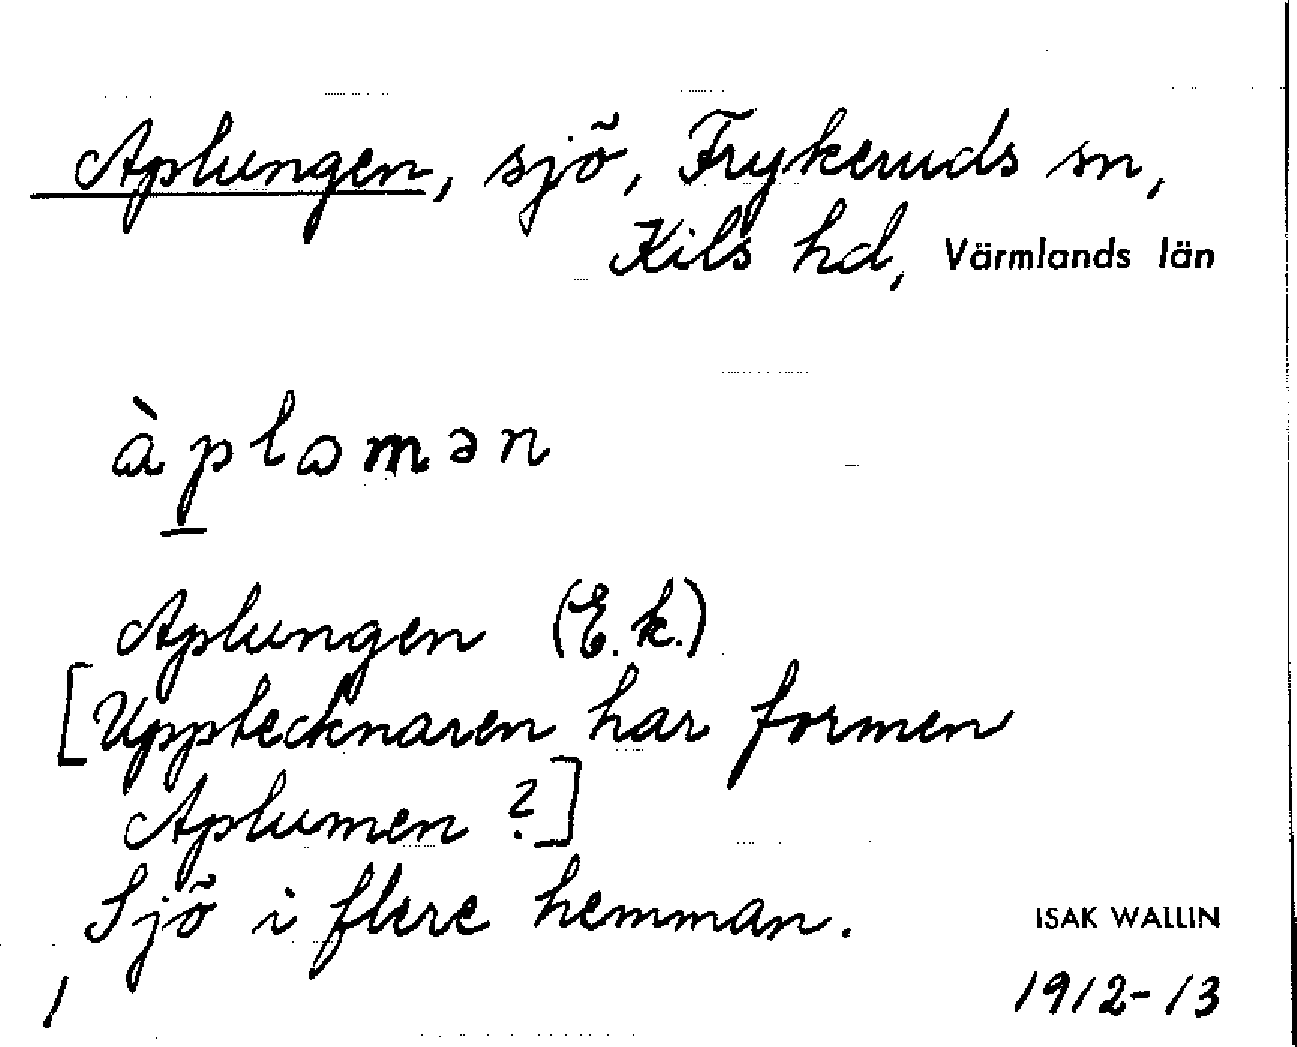 Aplungen, sjö, Frykeruds sn,
Kils hd, Värmlands län
àplꙍmən
Aplungen (E.k.)
[Upptecknaren har formen
Aplumen ?]
Sjö i flere hemman.
ISAK WALLIN
/
1912-13